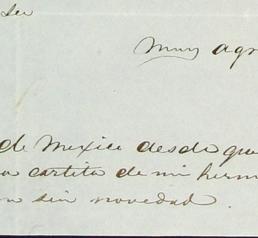 Muy agr
de Mexico desde que
a cartita de mi herm
n sin novedad.